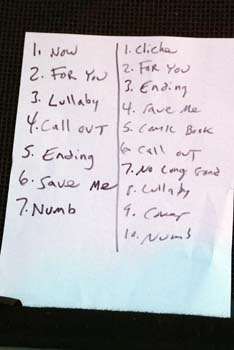 1. Now
2. For You
3. Lullaby
4. Call out
5. Ending
6. Save Me
7. Numb
1. Cliche
2. For You
3. Ending
4. Save Me
5. Comic Book
6. Call out
7. No Long
8. Lullaby
9.
10. Numb